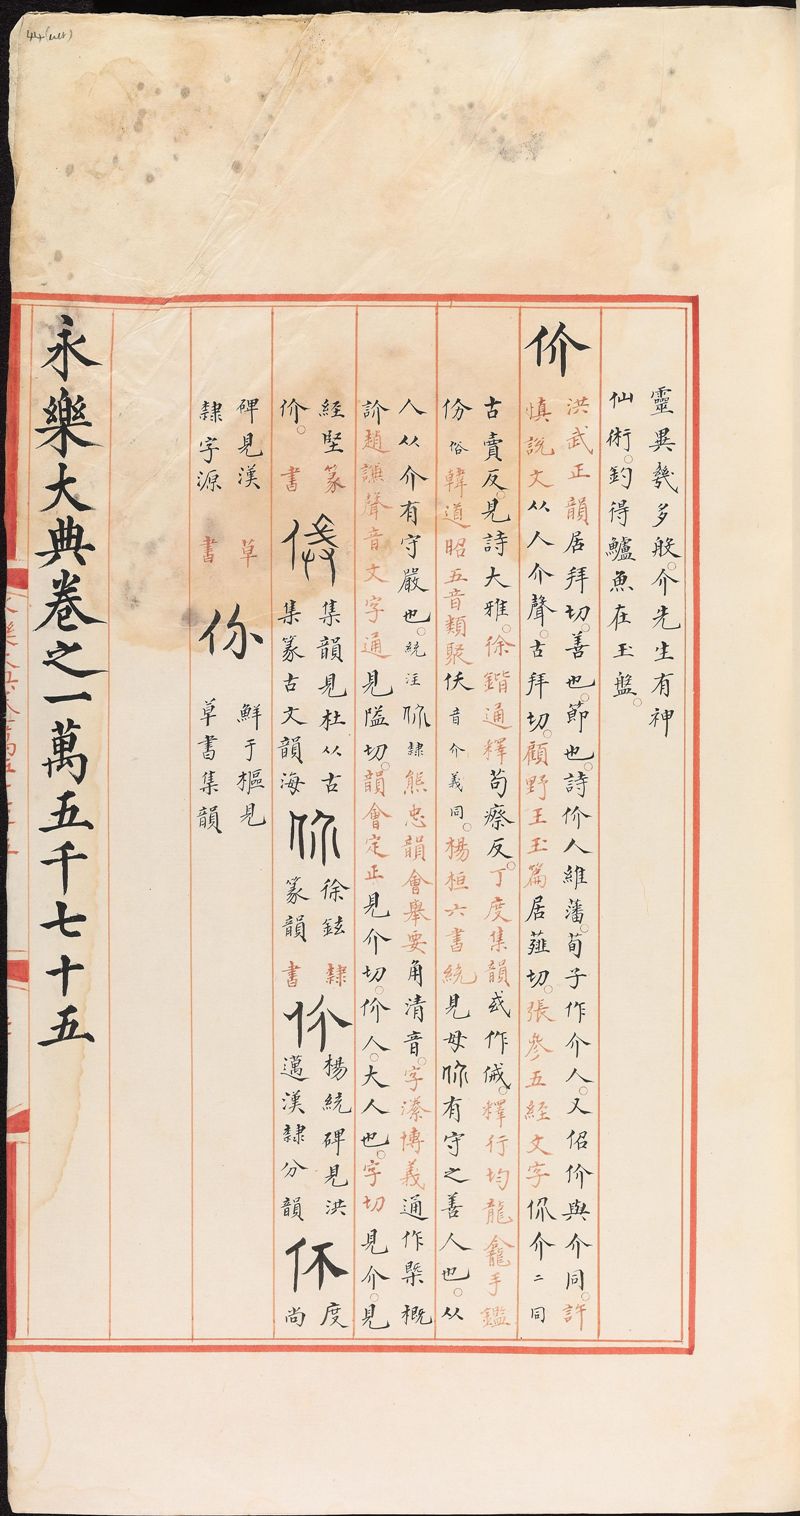 靈異幾多般。介先生有神
仙術。釣得鱸魚在玉盤。
价
洪武正韻居拜切。善也。節也。詩价人維藩。荀子作介人。又佋价與介同。許
慎說文从人介聲。古拜切。顧野王玉篇居薤切。張參五經文字价介二同
古賣反。見詩大雅。徐鍇通釋苟瘵反。丁度集韻或作𠈮。釋行均龍龕手鑑
㑘俗韓道昭五音類聚㑘音介義同。楊桓六書統見母价有守之善人也。从
人从介有守嚴也。統注价隸熊忠韻會舉要角清音。字潫博義通作槩概
訡趙謙聲音文字通見隘切。韻會定正見介切。价人。大人也。字切見介。見
經堅篆
价。書
集韻見杜从古
集篆古文韻海
徐鉉隸
篆韻書
价
楊統碑見洪
邁漢隸分韻
度尚
碑見漢草
隸字源書
鮮于樞見
草書集韻
永樂大典卷之一萬五千七十五